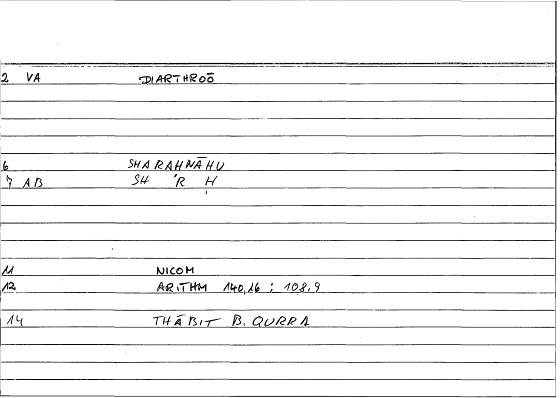 2 VA DIARTHROŌ
6 SHARAḤNĀHU
7 AB SH 'R Ḥ
11 NICOM
12 ARITHM 140,16 : 108,9
14 THĀBIT B. QURRA